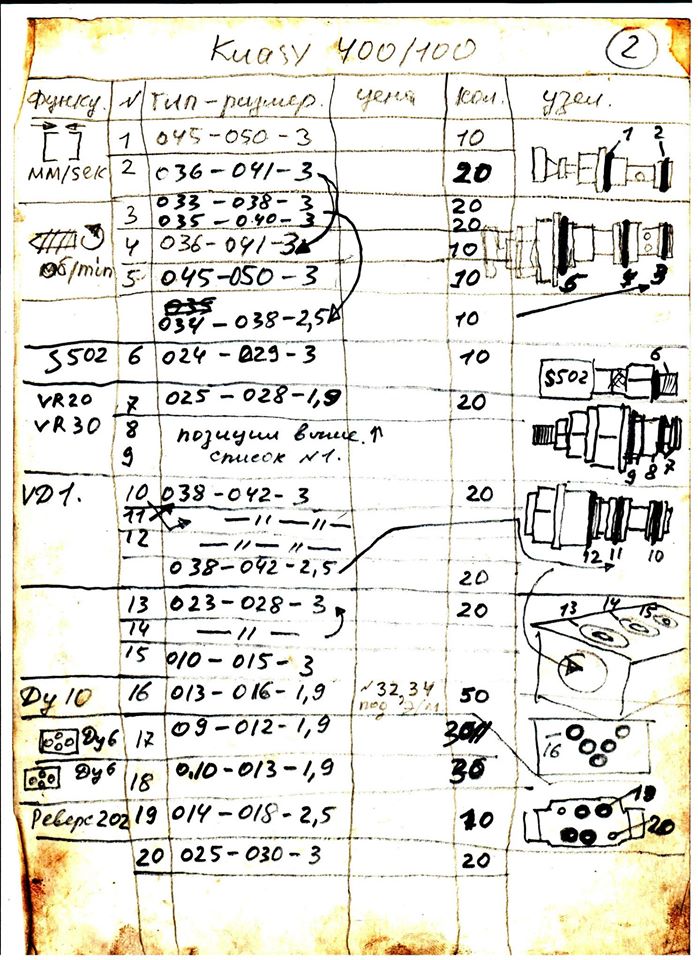 Kuasy 400/100
2
Функц. № Тип-размер. цена кол. узел.
1 045-050-3 10
мм/sек 2 036-041-3 20
033-038-3 20
3 035-040-3 20
4 036-041-3 10
об/min 5 045-050-3 10
035
034-038-2,5 10
S502 6 024-029-3 10
VR20 7 025-028-1,9 20
VR30 8 позиции выше ↑
9 список №1.
VD1. 10 038-042-3 20
11 —〃—〃—
12 —〃—〃—
038-042-2,5 20
13 023-028-3 20
14 —〃—
15 010-015-3
Ду 10 16 013-016-1,9 №32,34 50
под Э/М
Ду6 17 09-012-1,9
Ду6 18 010-013-1,9 30
Реверс 202 19 014-018-2,5 10
20 025-030-3 20
1 2
5 4 3
S502 6
9 8 7
12 11 10
13 14 15
16
19
20